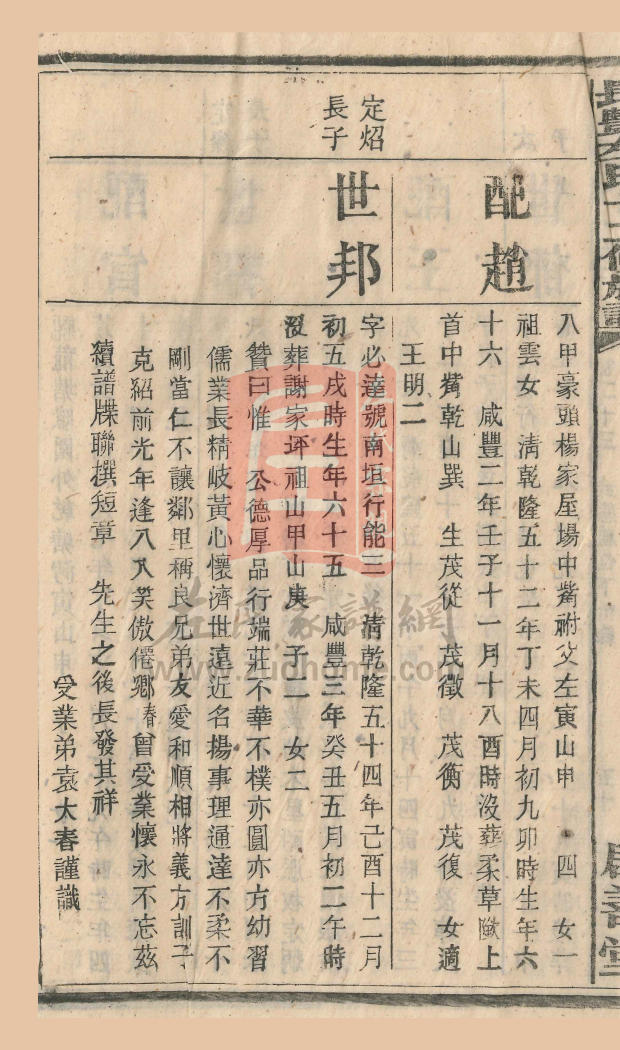 八甲豪頭楊家屋場中嘴祔父左寅山申 子四 女一
配趙
祖雲女 清乾隆五十二年丁未四月初九卯時生年六
十六 咸豐二年壬子十一月十八酉時沒葬柔草墩上
首中嘴乾山巽 生茂從 茂徵 茂衡 茂復 女適
王明二
定炤
長子
世邦
字必達號南垣行能三 清乾隆五十四年己酉十二月
初五戌時生年六十五 咸豐三年癸丑五月初二午時
沒葬謝家坪祖山甲山庚 子二 女二
贊曰惟 公德厚品行端莊不華不樸亦圓亦方幼習
儒業長精岐黃心懷濟世遠近名揚事理通達不柔不
剛當仁不讓鄰里稱良兄弟友愛和順相將義方訓子
克紹前光年逢八八笑傲僊鄉春曾受業懷永不忘茲
續譜牒聯撰短章 先生之後長發其祥
受業弟袁大春謹識
www.zuohome.com